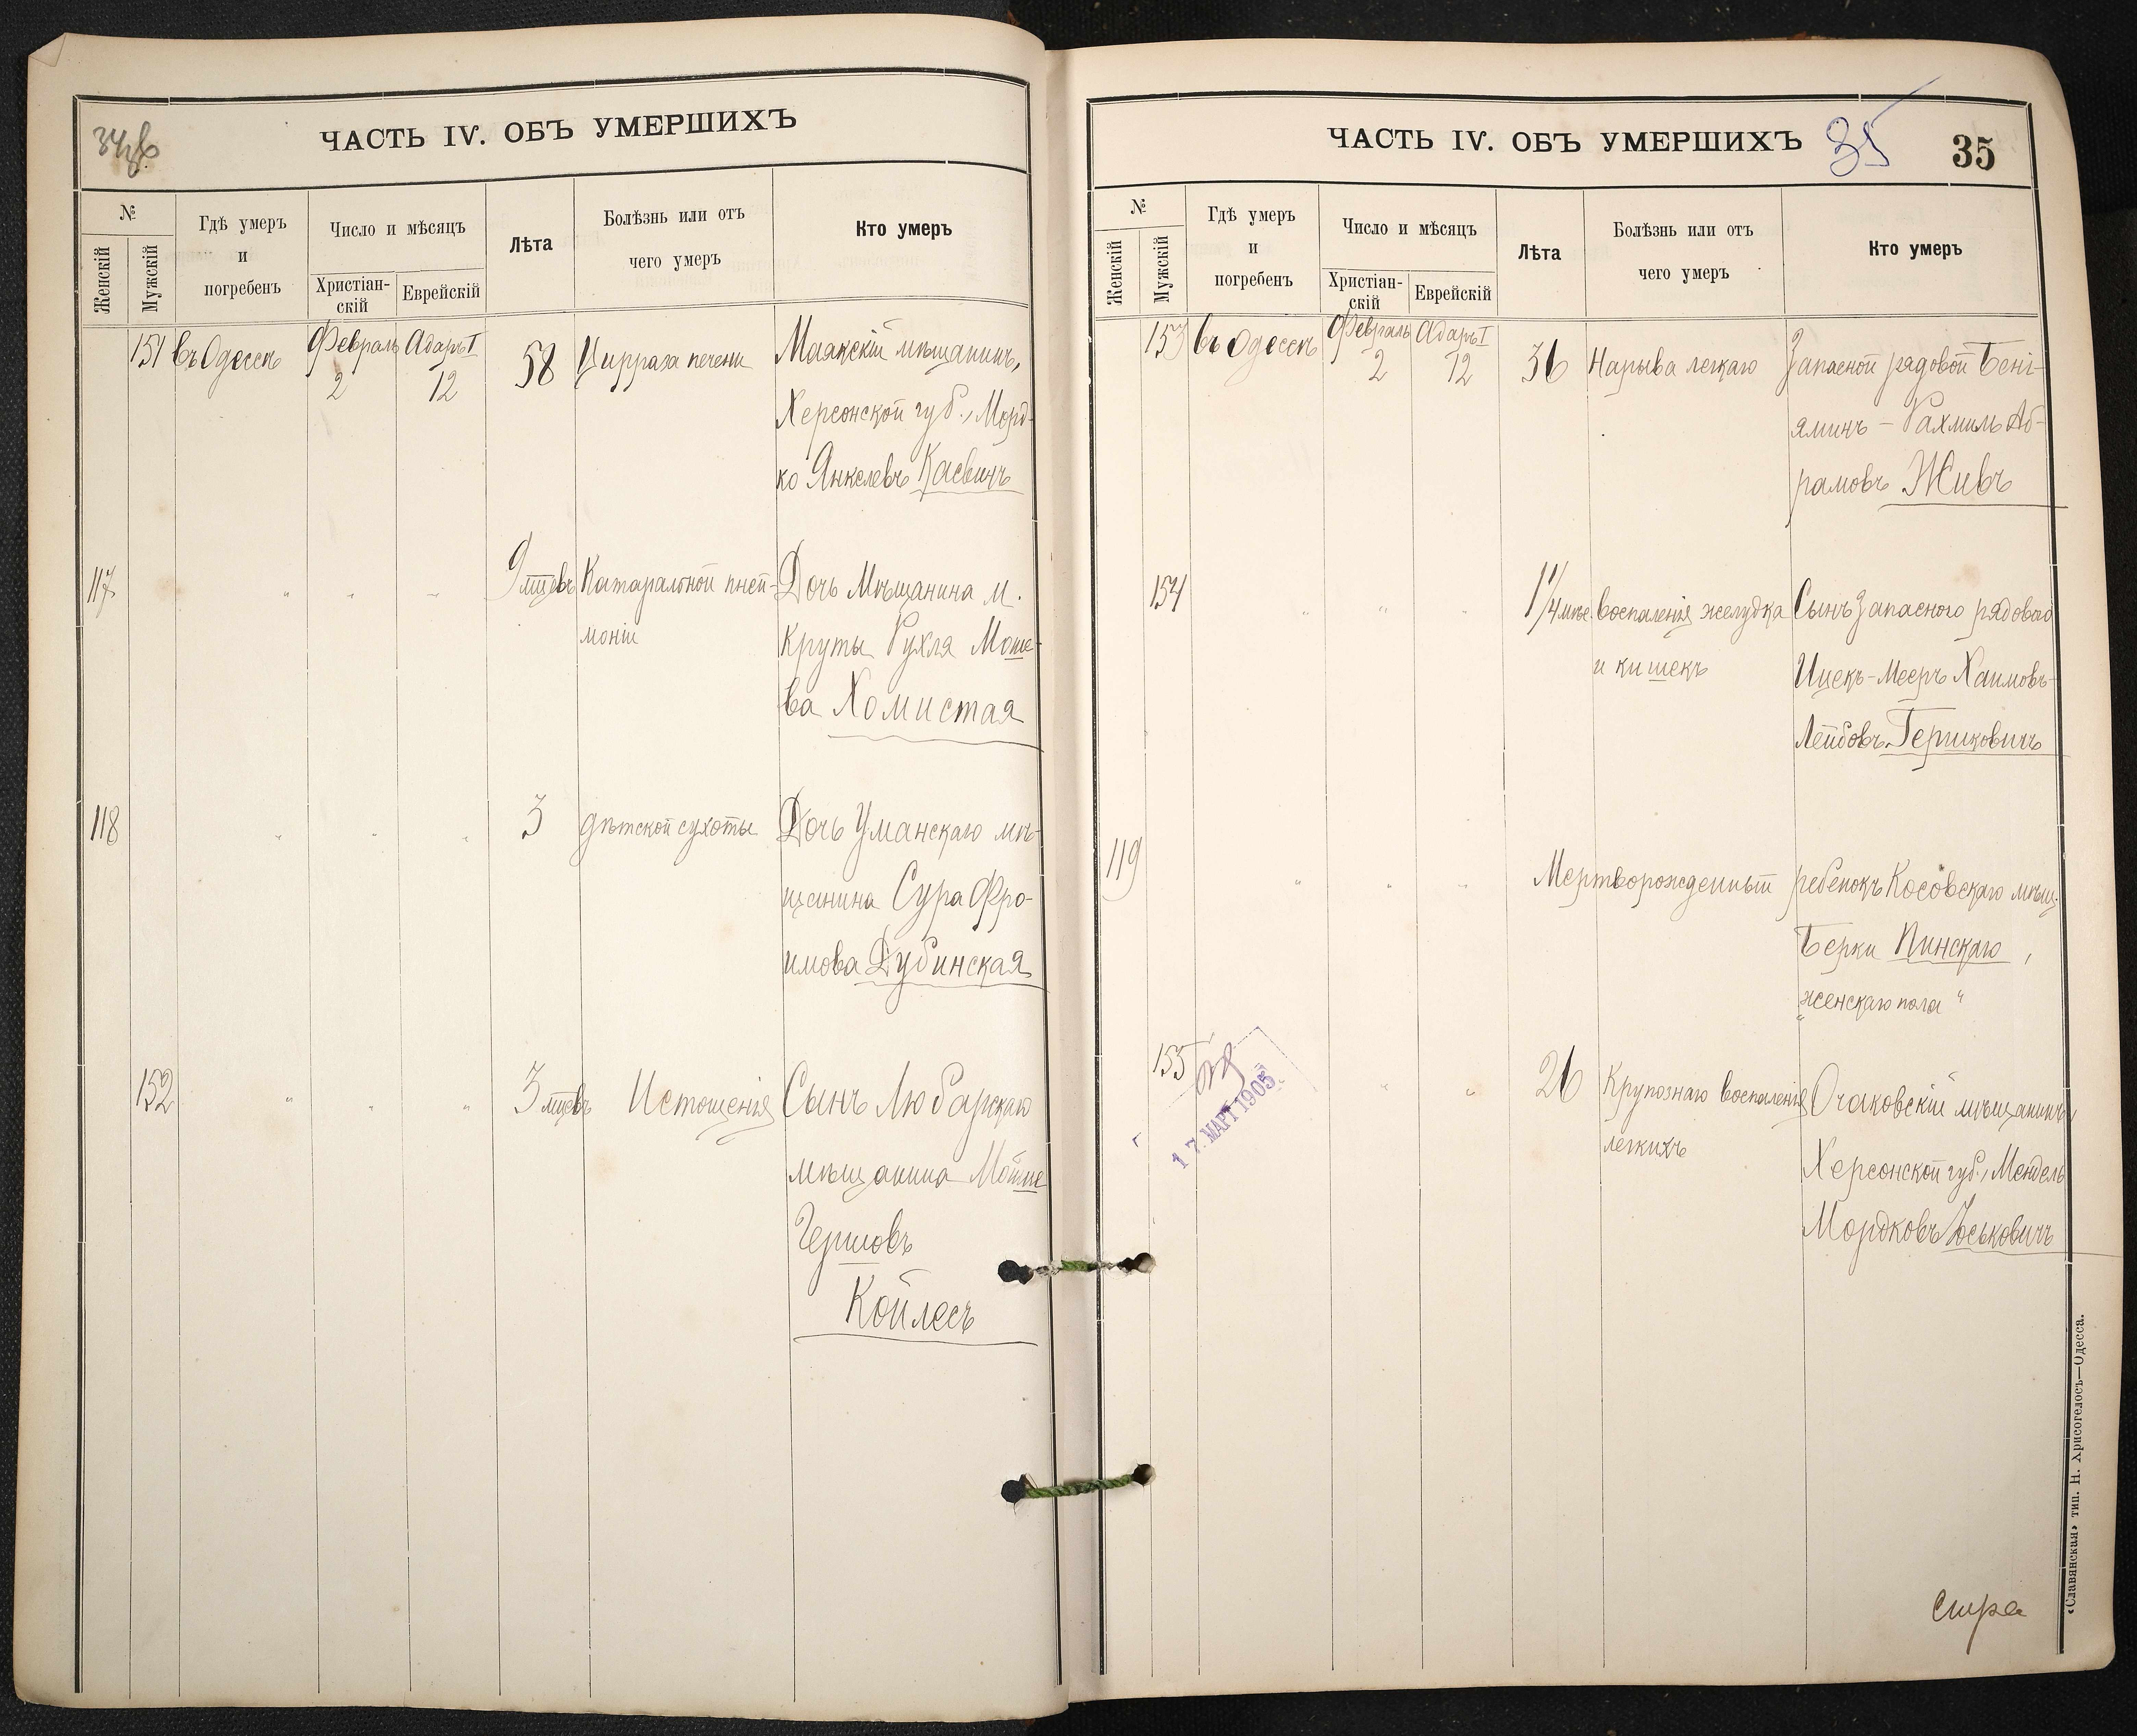 34об
ЧАСТЬ IV. ОБЪ УМЕРШИХЪ
№
Женскій
Мужскій
Гдѣ умеръ
и
погребенъ
Число и мѣсяцъ
Христіан-
скій
Еврейскій
Лѣта
Болѣзнь или отъ
чего умеръ
Кто умеръ
151 въ Одессѣ Февраль 2 Адаръ I 12 58 Цирроза печени Маякскій мѣщанинъ,
Херсонской губ., Морд-
ко Янкелевъ Касвинъ
117 " " " 9 мцевъ Катаральной пней- Дочь Мѣщанина м.
моніи Круты Рухля Моше-
ва Хомистая
118 " " " 3 дѣтской сухоты Дочь Уманскаго мѣ-
щанина Сура Фро-
имова Дубинская
152 " " " 3 мцевъ Истощенія Сынъ Любарскаго
мѣщанина Мойше
Гершовъ
Койлесъ
ЧАСТЬ IV. ОБЪ УМЕРШИХЪ
35
35
№
Женскій
Мужскій
Гдѣ умеръ
и
погребенъ
Число и мѣсяцъ
Христіан-
скій
Еврейскій
Лѣта
Болѣзнь или отъ
чего умеръ
Кто умеръ
153 въ Одессѣ Февраль 2 Адаръ I 12 36 Нарыва легкаго Запасной рядовой Бені-
яминъ - Рахмиль Аб-
рамовъ Живъ
154 " " " 1 1/4 мѣс. воспаленія желудка Сынъ запасного рядового
и кишекъ Ицекъ-Мееръ Хаимовъ-
Лейбовъ Гершковичъ
119 " " " Мертворожденный ребенокъ Косовскаго мѣщ.
Берки Пинскаго,
"женскаго пола"
155 " " 26 Крупознаго воспаленія Очаковскій мѣщанинъ,
легкихъ Херсонской губ., Мендель
Мордковъ Юськовичъ
17. МАРТ 1905
«Славянская» тип. Н. Хрисогелосъ—Одесса.